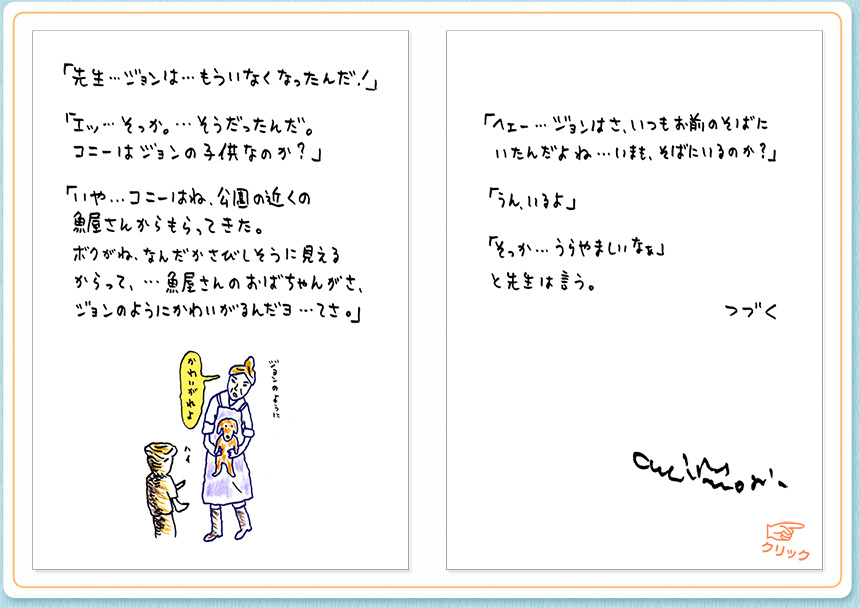 「先生…ジョンは…もういなくなったんだ!」
「エッ…そっか。…そうだったんだ。
コニーはジョンの子供なのか?」
「いや…コニーはね、公園の近くの
魚屋さんからもらってきた。
ボクがね、なんだかさびしそうに見える
からって、…魚屋さんのおばちゃんがさ、
ジョンのようにかわいがるんだヨ…てさ。」
ジョンのように
かわいがれよ
ハイ
「ヘェー…ジョンはさ、いつもお前のそばに
いたんだよね…いまも、そばにいるのか?」
「うん、いるよ」
「そっか…うらやましいなぁ」
と先生は言う。
つづく
クリック